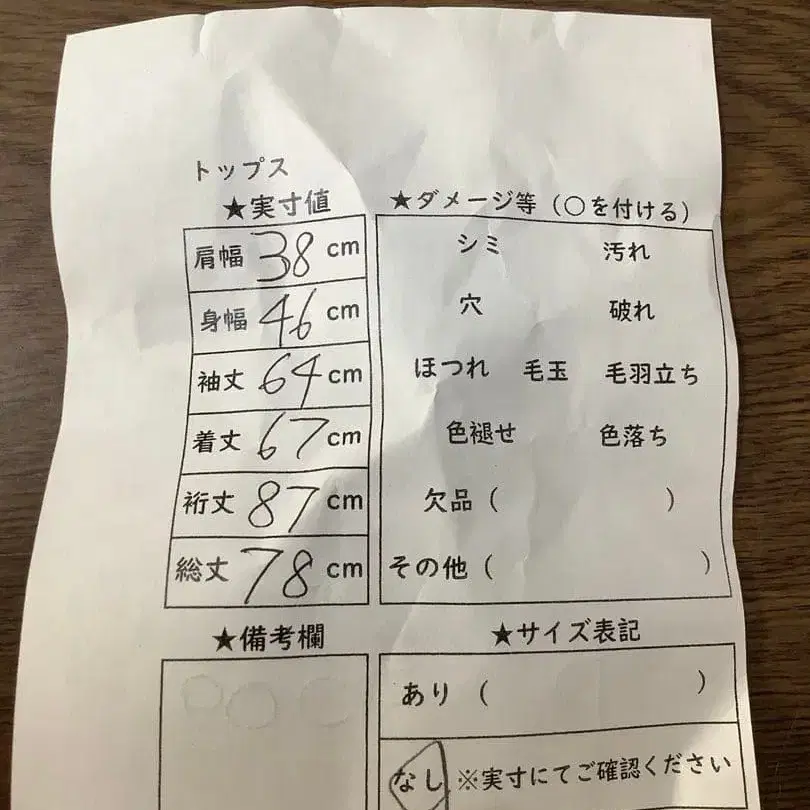 トップス
★実寸値
肩幅 38 cm
身幅 46 cm
袖丈 64 cm
着丈 67 cm
裄丈 87 cm
総丈 78 cm
★ダメージ等（○を付ける）
シミ 汚れ
穴 破れ
ほつれ 毛玉 毛羽立ち
色褪せ 色落ち
欠品（ ）
その他（ ）
★備考欄
★サイズ表記
あり（ ）
なし ※実寸にてご確認ください